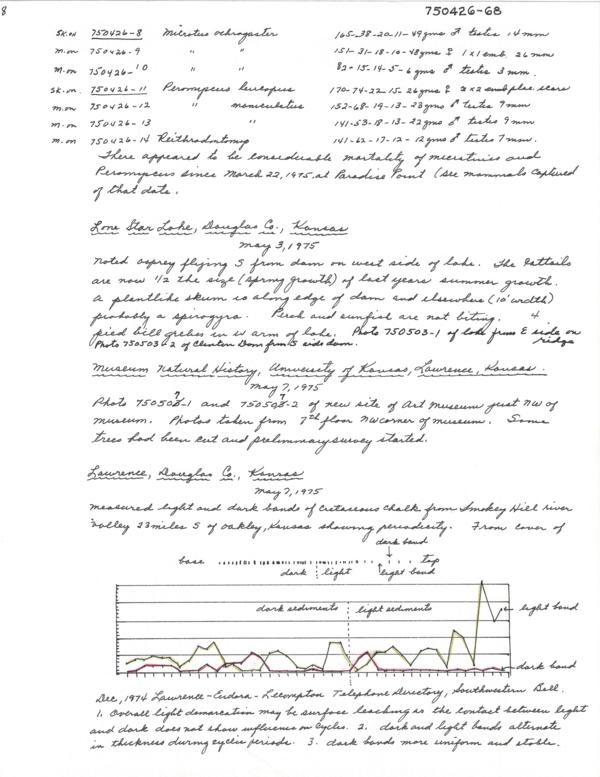 8
750426-68
SK.on 750426-8 Microtus ochrogaster 165-38-20-11-49gms ♂ testis 14 mm
m.on 750426-9 " " 151-31-18-10-48gms ♀ 1x1 emb. 26 mm
m.on 750426-10 " " 82-15-14-5-6 gms ♂ testis 3 mm.
SK.on 750426-11 Peromyscus leucopus 170-74-22-15-26gms ♀ 2x2 emb plac. scars
m.on 750426-12 " maniculatus 152-68-19-13-23gms ♂ testes 7mm
m.on 750426-13 " 141-53-18-13-22gms ♂ testes 9mm
m.on 750426-14 Reithrodontomys 141-62-17-12-12gms ♂ testes 7mm.
There appeared to be considerable mortality of microtines and
Peromyscus since March 22, 1975 at Paradise Point (see mammals captured
of that date.
Lone Star Lake, Douglas Co., Kansas
May 3, 1975
Noted osprey flying S from dam on west side of lake. The cattails
are now 1/2 the size (spring growth) of last years summer growth.
A plantlike skum is along edge of dam and elsewhere (10' width)
probably a spirogyra. Perch and sunfish are not biting. 4
pied bill grebes in W arm of lake. Photo 750503-1 of lake from E side on
ridge
Photo 750503-2 of Clinton Dam from S side dam.
Museum Natural History, University of Kansas, Lawrence, Kansas.
May 7, 1975
Photo 750507-1 and 750507-2 of new site of Art Museum just NW of
museum. Photos taken from 7th floor NW corner of museum. Some
trees had been cut and preliminary survey started.
Lawrence, Douglas Co., Kansas
May 7, 1975
Measured light and dark bands of Cretaceous chalk from Smokey Hill river
valley 23 miles S of Oakley, Kansas showing periodicity. From cover of
dark band
base top
dark light light band
dark sediments light sediments
light band
dark band
Dec, 1974 Lawrence-Eudora-Lecompton Telephone Directory, Southwestern Bell.
1. Overall light demarcation may be surface leaching as the contact between light
and dark does not show influence on cycles. 2. dark and light bands alternate
in thickness during cyclic periods. 3. dark bands more uniform and stable.